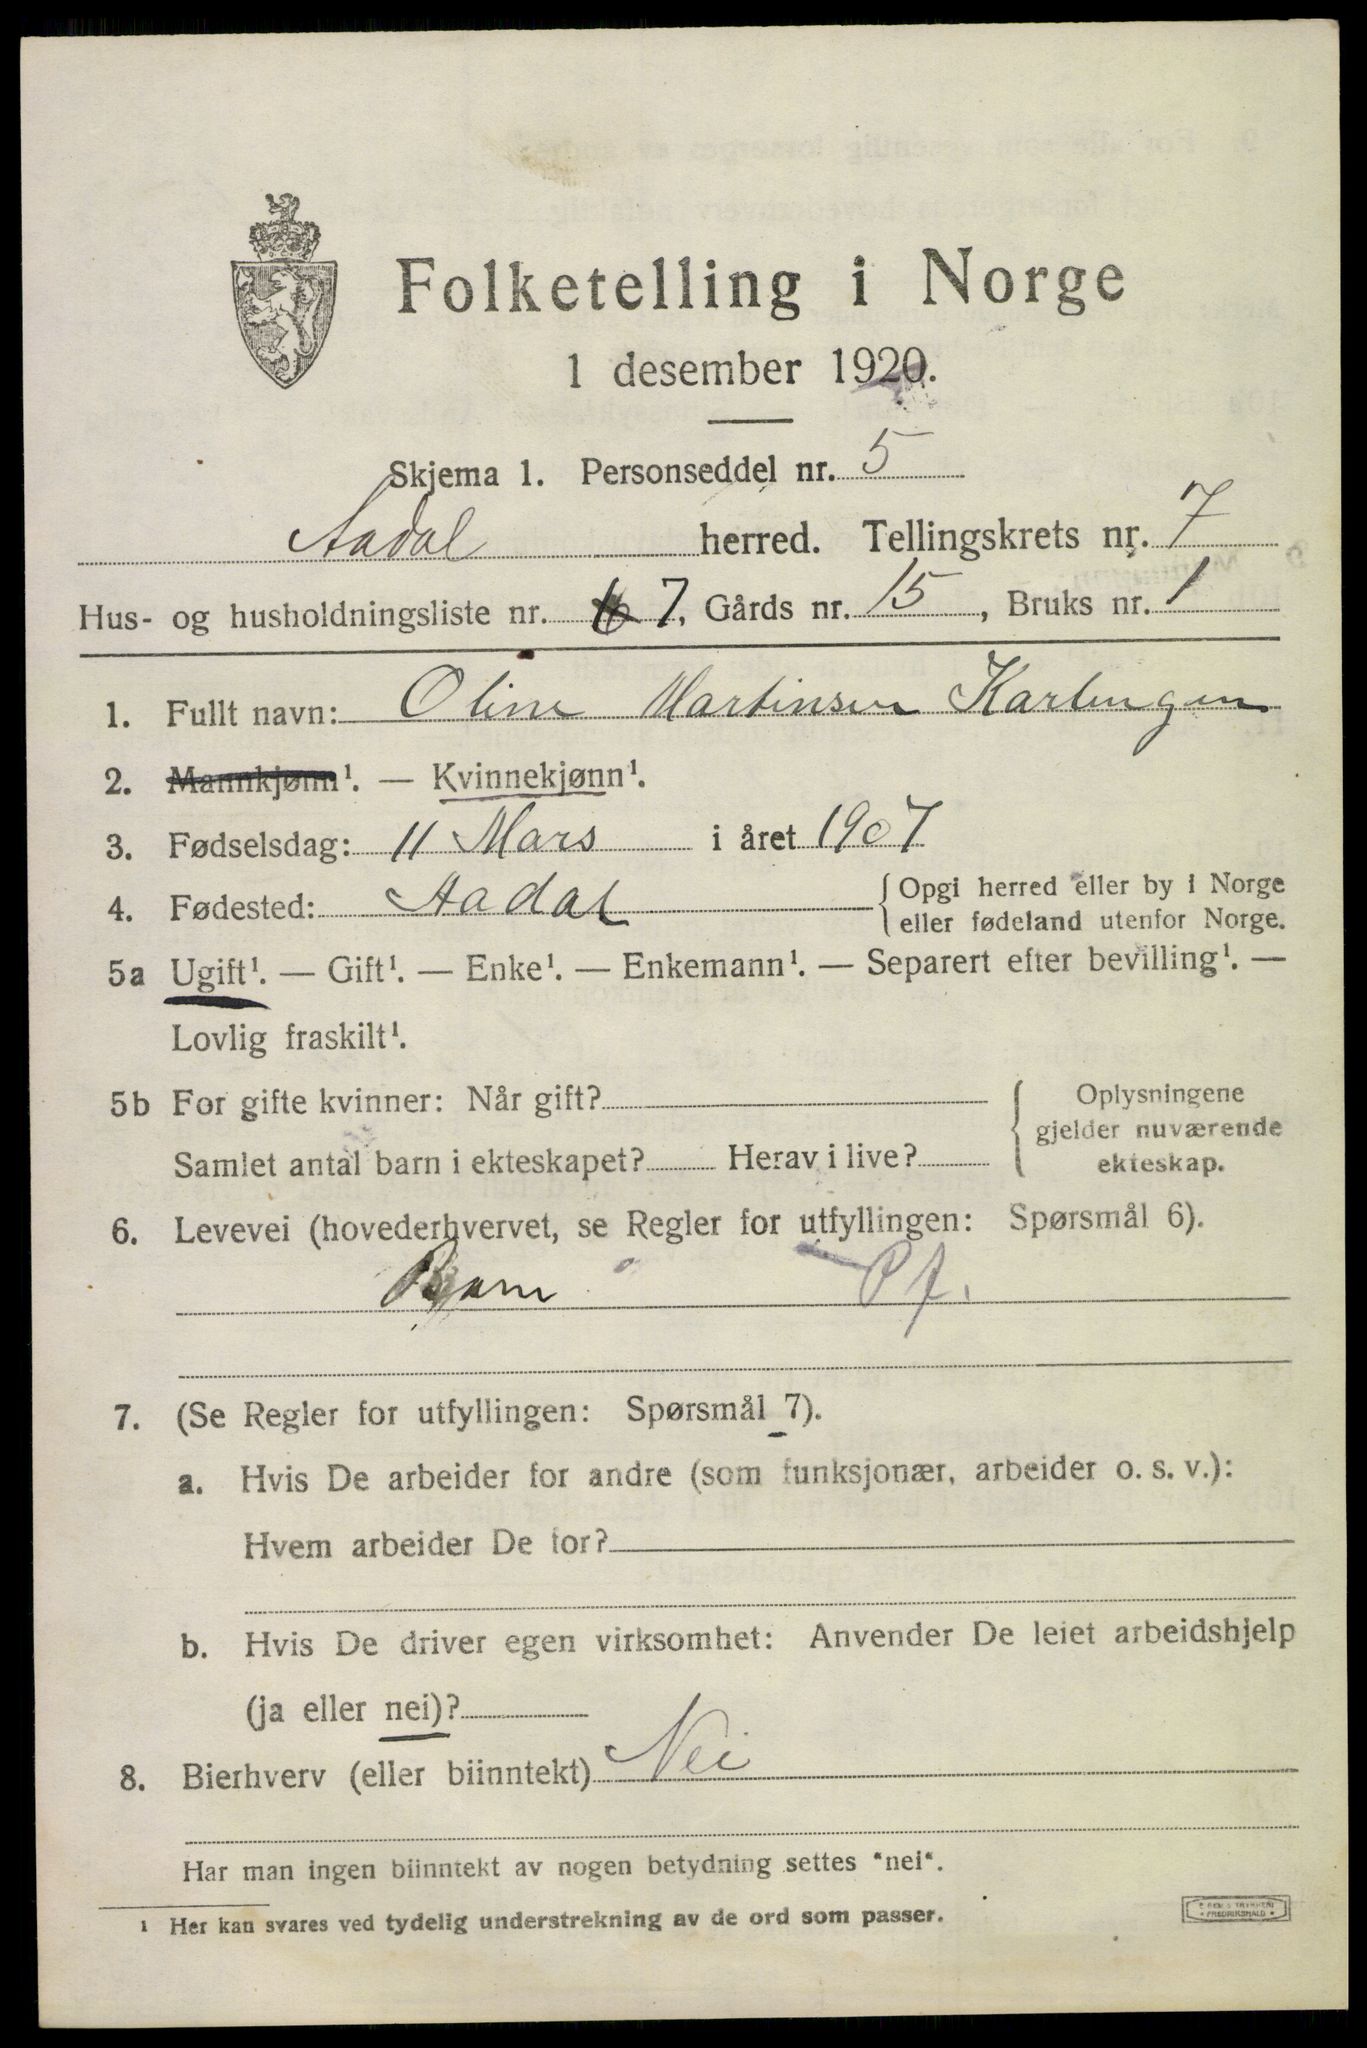 Folketelling i Norge
1 desember 1920.
Skjema 1. Personseddel nr. 5
Aadal herred. Tellingskrets nr. 7
Hus- og husholdningsliste nr. 7, Gårds nr. 15, Bruks nr. 1
1. Fullt navn: Oline Martinsen
2. Mannkjønn¹. — Kvinnekjønn¹.
3. Fødselsdag: 11 Mars i året 1907
4. Fødested: Aadal { Opgi herred eller by i Norge
eller fødeland utenfor Norge.
5a Ugift¹. — Gift¹. — Enke¹. — Enkemann¹. — Separert efter bevilling¹. —
Lovlig fraskilt¹.
5b For gifte kvinner: Når gift? { Oplysningene
gjelder nuværende
Samlet antal barn i ekteskapet? Herav i live? ekteskap.
6. Levevei (hovederhvervet, se Regler for utfyllingen: Spørsmål 6).
Barn
7. (Se Regler for utfyllingen: Spørsmål 7).
a. Hvis De arbeider for andre (som funksjonær, arbeider o. s. v.):
Hvem arbeider De for?
b. Hvis De driver egen virksomhet: Anvender De leiet arbeidshjelp
(ja eller nei)?
8. Bierhverv (eller biinntekt) Nei
Har man ingen biinntekt av nogen betydning settes "nei".
¹ Her kan svares ved tydelig understrekning av de ord som passer.